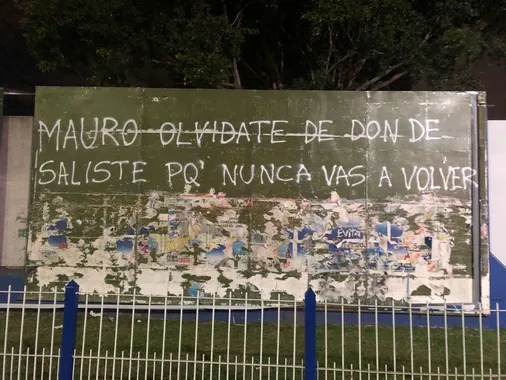 MAURO OLVIDATE DE DON DE
SALISTE PQ' NUNCA VAS A VOLVER
EVITA